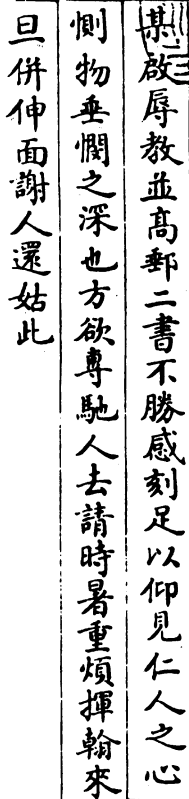 某啟辱教並高郵二書不勝感刻足以仰見仁人之心
惻物垂憫之深也方欲專馳人去請時暑重煩揮翰來
旦併伸面謝人還姑此